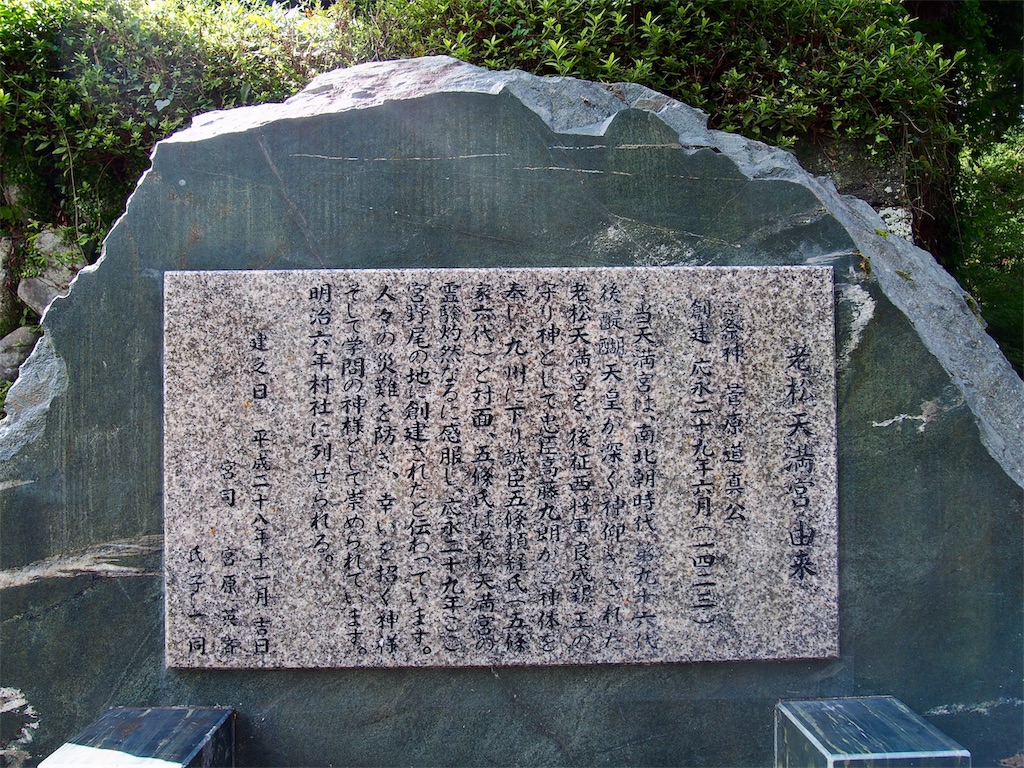 老松天満宮由来
宮祭神 菅原道真公
創建 応永二十九年六月(一四二三)
当天満宮は、南北朝時代、第九十六代
後醍醐天皇が深く神仰をされた
老松天満宮を、後征西将軍良成親王の
守り神として忠臣高藤九朗が、神体を
奉じ、九州に下り誠臣五條頼経氏(五條
家六代)と対面、五條氏は老松天満宮の
霊験灼然なるに感服し、応永二十九年、ここ
宮野尾の地に創建されたと伝わっています。
人々の災難を防ぎ、幸いを招く神様
そして学問の神様として崇められています。
明治六年村社に列せられる。
建之日 平成二十八年十一月吉日
宮司 宮原英
氏子一同